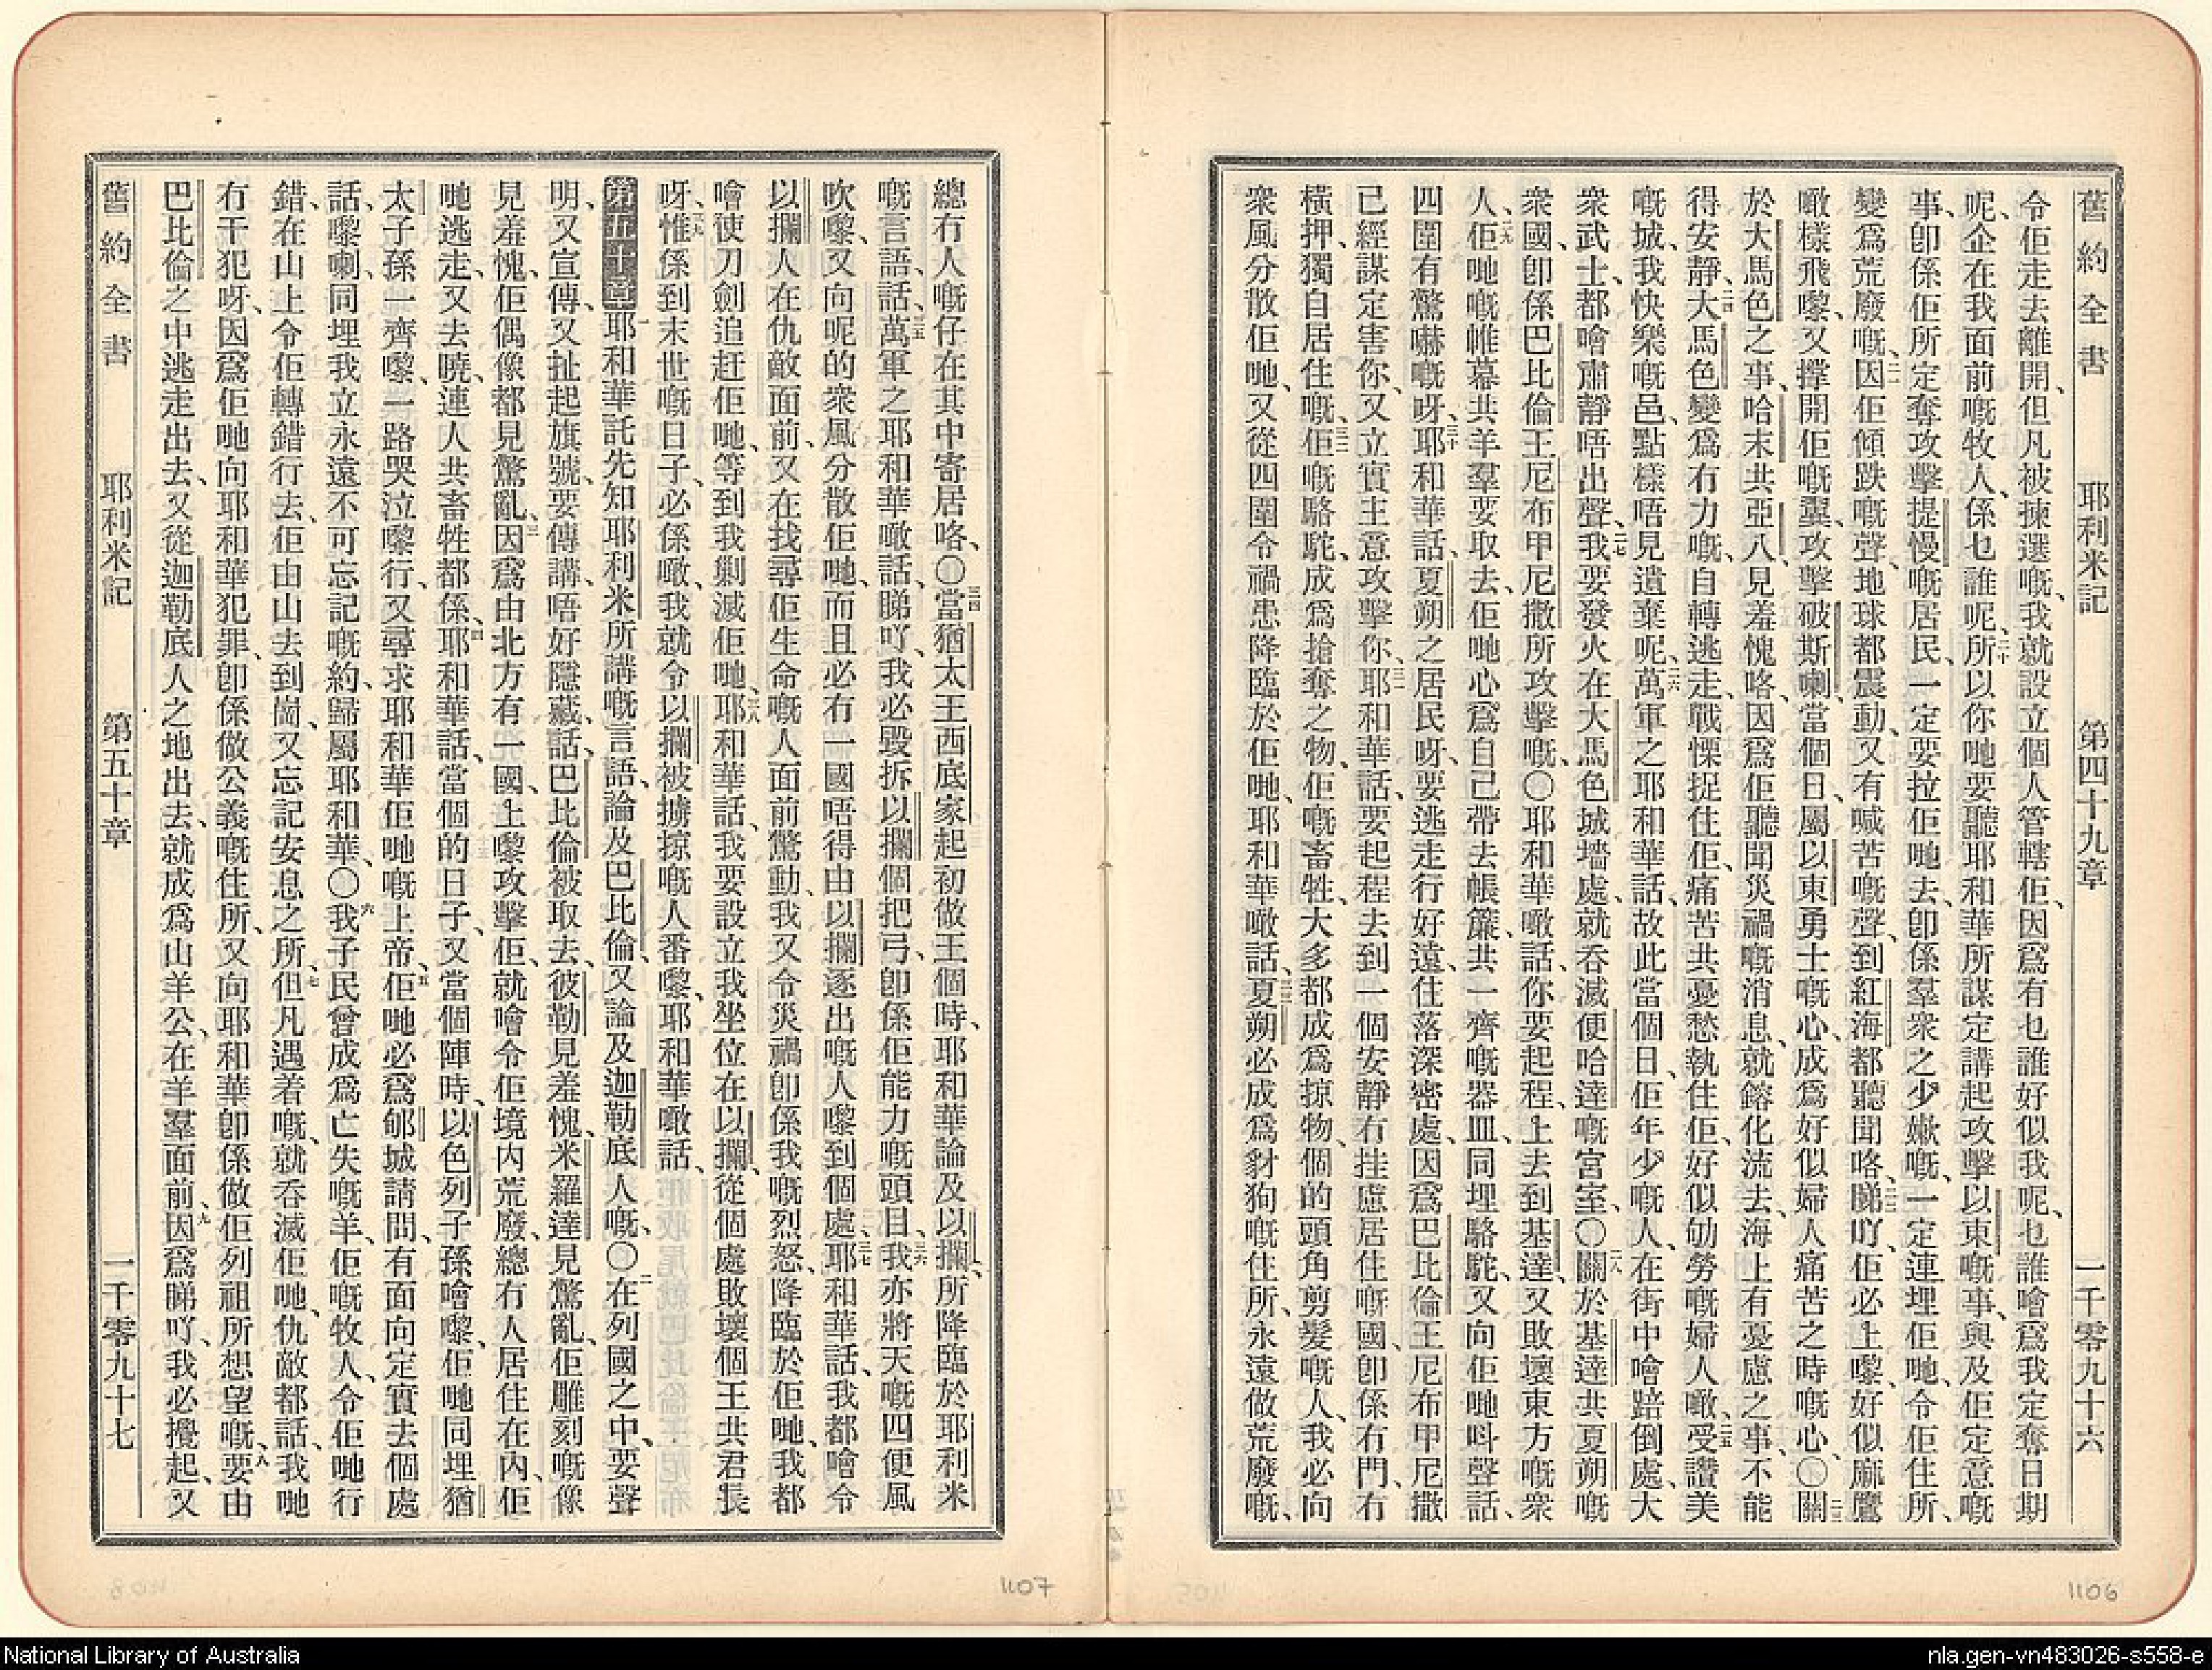 舊約全書 耶利米記 第四十九章 一千零九十六
令佢走去離開、但凡被揀選嘅、我就設立個人管轄佢、因爲有乜誰好似我呢、乜誰噲爲我定奪日期
呢、企在我面前嘅牧人、係乜誰呢、二十所以你哋要聽耶和華所謀定講起攻擊以東嘅事、與及佢定意嘅
事、卽係佢所定奪攻擊提慢嘅居民、一定要拉佢哋去、卽係羣衆之少嫩嘅、一定連埋佢哋、令佢住所、
變爲荒廢嘅、二一因佢傾跌嘅聲、地球都震動、又有喊苦嘅聲、到紅海都聽聞咯、二二睇吖、佢必上嚟、好似麻鷹
噉樣飛嚟、又撑開佢嘅翼、攻擊破斯喇、當個日、屬以東勇士嘅心、成爲好似婦人痛苦之時嘅心、〇二三關
於大馬色之事、哈末共亞八見羞愧咯、因爲佢聽聞災禍嘅消息、就鎔化流去、海上有憂慮之事、不能
得安靜、二四大馬色變爲冇力嘅、自轉逃走、戰慄捉住佢、痛苦共憂愁執住佢、好似劬勞嘅婦人噉、二五受讚美
嘅城、我快樂嘅邑、點樣唔見遺棄呢、二六萬軍之耶和華話、故此當個日、佢年少嘅人、在街中噲踣倒處、大
衆武士、都噲肅靜唔出聲、二七我要發火在大馬色城墻處、就吞滅便哈達嘅宮室、〇二八關於基達共夏朔嘅
衆國、卽係巴比倫王尼布甲尼撒所攻擊嘅、〇耶和華噉話、你要起程、上去到基達、又敗壞東方嘅衆
人、二九佢哋嘅帷幕共羊羣要取去、佢哋心爲自己帶去帳簾、共一齊嘅器皿、同埋駱駝、又向佢哋呌聲話、
四圍有驚嚇嘅呀、三十耶和華話、夏朔之居民呀、要逃走行好遠、住落深密處、因爲巴比倫王尼布甲尼撒
已經謀定害你、又立實主意攻擊你、三一耶和華話、要起程去到一個安靜冇掛慮居住嘅國、卽係冇門、冇
橫押、獨自居住嘅、三二佢嘅駱駝、成爲搶奪之物、佢嘅畜牲、大多都成爲掠物、個的頭角剪髮嘅人、我必向
衆風分散佢哋、又從四圍令禍患降臨於佢哋、耶和華噉話、三三夏朔必成爲豺狗嘅住所、永遠做荒廢嘅、
1106
總冇人嘅仔在其中寄居咯、〇三四當猶太王西底家起初做王個時、耶和華論及以攔、所降臨於耶利米
嘅言語、話、三五萬軍之耶和華噉話、睇吖、我必毀拆以攔個把弓、卽係佢能力嘅頭目、三六我亦將天嘅四便風
吹嚟、又向呢的衆風分散佢哋、而且必冇一國唔得由以攔逐出嘅人嚟到個處、三七耶和華話、我都噲令
以攔人在仇敵面前、又在找尋佢生命嘅人面前驚動、我又令災禍卽係我嘅烈怒、降臨於佢哋、我都
噲使刀劍追赶佢哋、等到我剿滅佢哋、三八耶和華話、我要設立我坐位在以攔、從個處敗壞個王共君長
呀、三九惟係到末世嘅日子、必係噉、我就令以攔被擄掠嘅人番嚟、耶和華噉話、
第五十章 一耶和華託先知耶利米所講嘅言語、論及巴比倫、又論及迦勒底人嘅、〇二在列國之中、要聲
明、又宣傳、又扯起旗號、要傳講、唔好隱藏、話、巴比倫被取去、彼勒見羞愧、米羅達見驚亂、佢雕刻嘅像
見羞愧、佢偶像都見驚亂、三因爲由北方有一國、上嚟攻擊佢、就噲令佢境内荒廢、總冇人居住在内、佢
哋逃走、又去曉、連人共畜牲都係、四耶和華話、當個的日子、又當個陣時、以色列子孫噲嚟、佢哋同埋猶
太子孫一齊嚟、一路哭泣嚟行、又尋求耶和華佢哋嘅上帝、五佢哋必爲郇城請問、有面向定實去個處
話、嚟喇、同埋我立永遠不可忘記嘅約、歸屬耶和華、〇六我子民曾成爲亡失嘅羊、佢嘅牧人、令佢哋行
錯、在山上令佢轉錯行去、佢由山去到崗、又忘記安息之所、七但凡遇着嘅、就吞滅佢哋、仇敵都話、我哋
冇干犯呀、因爲佢哋向耶和華犯罪、卽係做公義嘅住所、又向耶和華卽係做佢列祖所想望嘅、八要由
巴比倫之中逃走出去、又從迦勒底人之地出去、就成爲山羊公、在羊羣面前、九因爲睇吖、我必攪起、又
舊約全書 耶利米記 第五十章 一千零九十七
1107
National Library of Australia
nla.gen-vn483026-s558-e